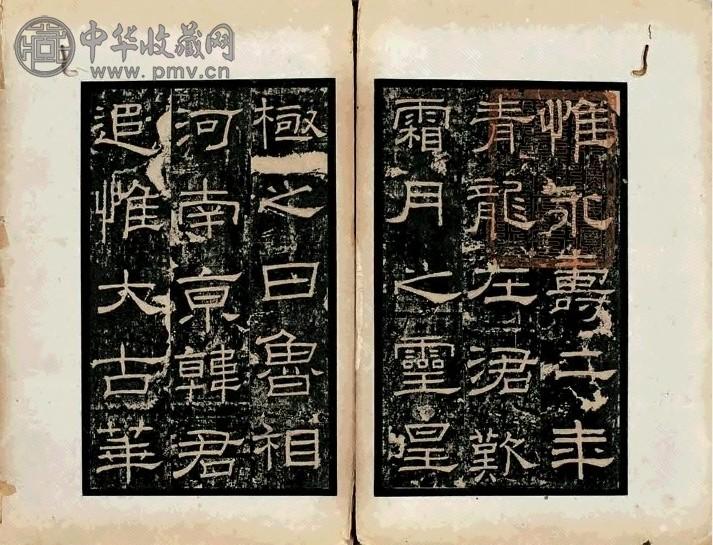 中华收藏网
www.pmv.cn
惟永壽二年
青龍在涒歎
霜月之靈皇
極之日魯相
河南京韓君
追惟大古華